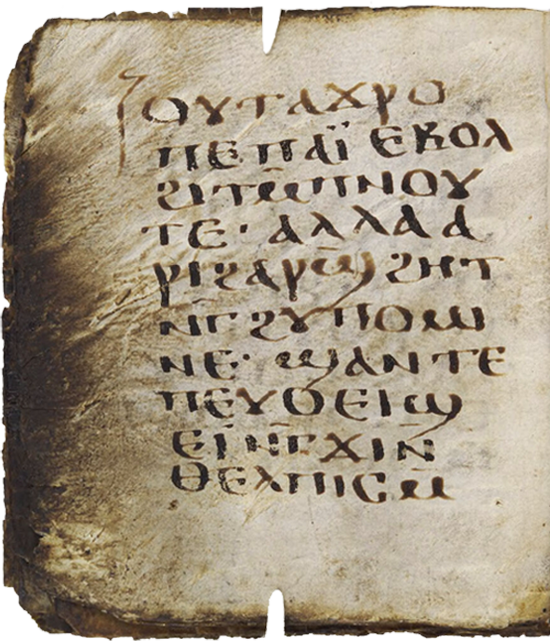 ⲟⲩⲧⲁϫⲣⲟ
ⲡⲉ ⲡⲁⲓ̈ ⲉⲃⲟⲗ
ϩⲓⲧⲙ̅ⲡⲛⲟⲩ
ⲧⲉ· ⲁⲗⲗⲁ ⲁ
ⲣⲓϩⲁⲣϣ̅ϩⲏⲧ
ⲛⲅ̅ϩⲩⲡⲟⲙⲓ
ⲛⲉ· ϣⲁⲛⲧⲉ
ⲡⲉⲩⲟⲉⲓϣ
ⲉⲓ ⲛ̅ⲅϫⲓⲛ̅
ⲑⲉⲗⲡⲓⲥ ⲙ̅